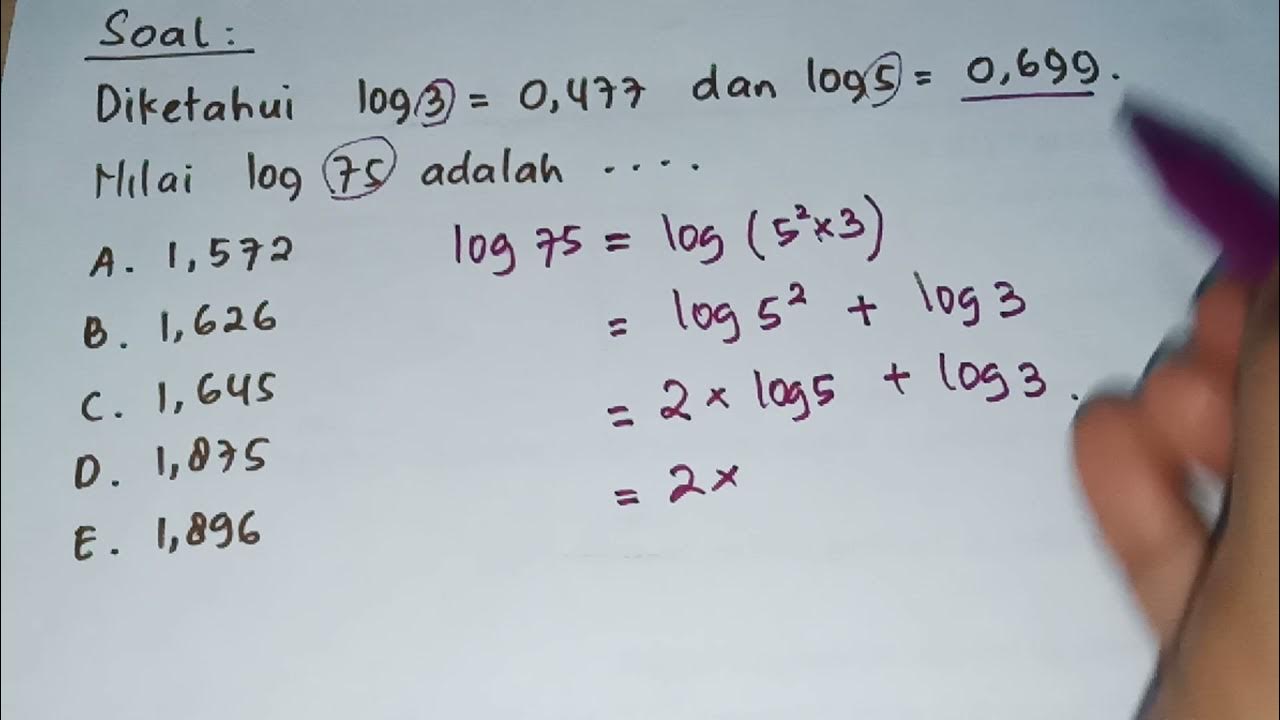 Soal :
Diketahui log 3 = 0,477 dan log 5 = 0,699.
Nilai log 75 adalah ....
A. 1,572
B. 1,626
C. 1,645
D. 1,875
E. 1,896
log 75 = log (5² × 3)
= log 5² + log 3
= 2 × log 5 + log 3
= 2 ×